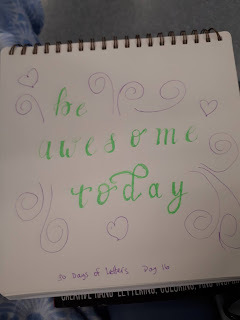 be
awesome
today
30 Days of Letters Day 16
CREATIVE HAND LETTERING, COLORING, AND